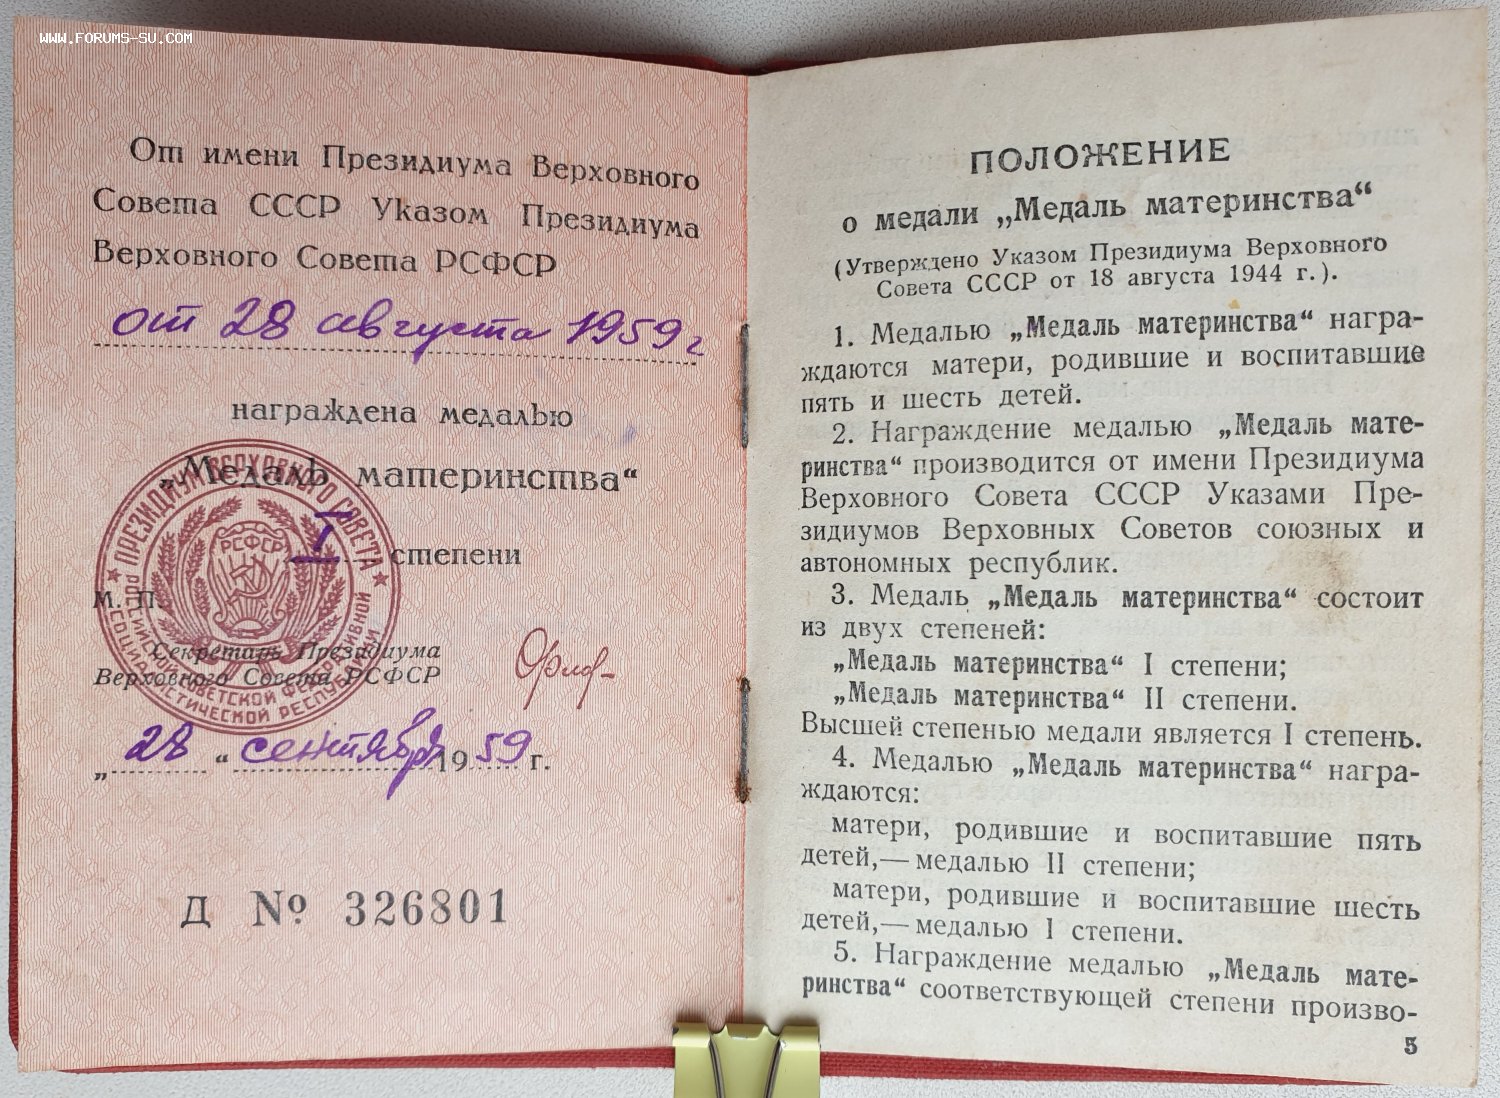 www.forums-su.com
От имени Президиума Верховного
Совета СССР Указом Президиума
Верховного Совета РСФСР
от 28 августа 1959 г
награждена медалью
„Медаль материнства“
I степени
РСФСР
ПРЕЗИДИУМ ВЕРХОВНОГО СОВЕТА
РОССИЙСКОЙ СОВЕТСКОЙ ФЕДЕРАТИВНОЙ
СОЦИАЛИСТИЧЕСКОЙ РЕСПУБЛИКИ
М. П.
Секретарь Президиума
Верховного Совета РСФСР
„28“ сентября 1959 г.
Д № 326801
ПОЛОЖЕНИЕ
о медали „Медаль материнства“
(Утверждено Указом Президиума Верховного
Совета СССР от 18 августа 1944 г.).
1. Медалью „Медаль материнства“ награ-
ждаются матери, родившие и воспитавшие
пять и шесть детей.
2. Награждение медалью „Медаль мате-
ринства“ производится от имени Президиума
Верховного Совета СССР Указами Пре-
зидиумов Верховных Советов союзных и
автономных республик.
3. Медаль „Медаль материнства“ состоит
из двух степеней:
„Медаль материнства“ I степени;
„Медаль материнства“ II степени.
Высшей степенью медали является I степень.
4. Медалью „Медаль материнства“ награ-
ждаются:
матери, родившие и воспитавшие пять
детей,—медалью II степени;
матери, родившие и воспитавшие шесть
детей,—медалью I степени.
5. Награждение медалью „Медаль мате-
ринства“ соответствующей степени произво-
5